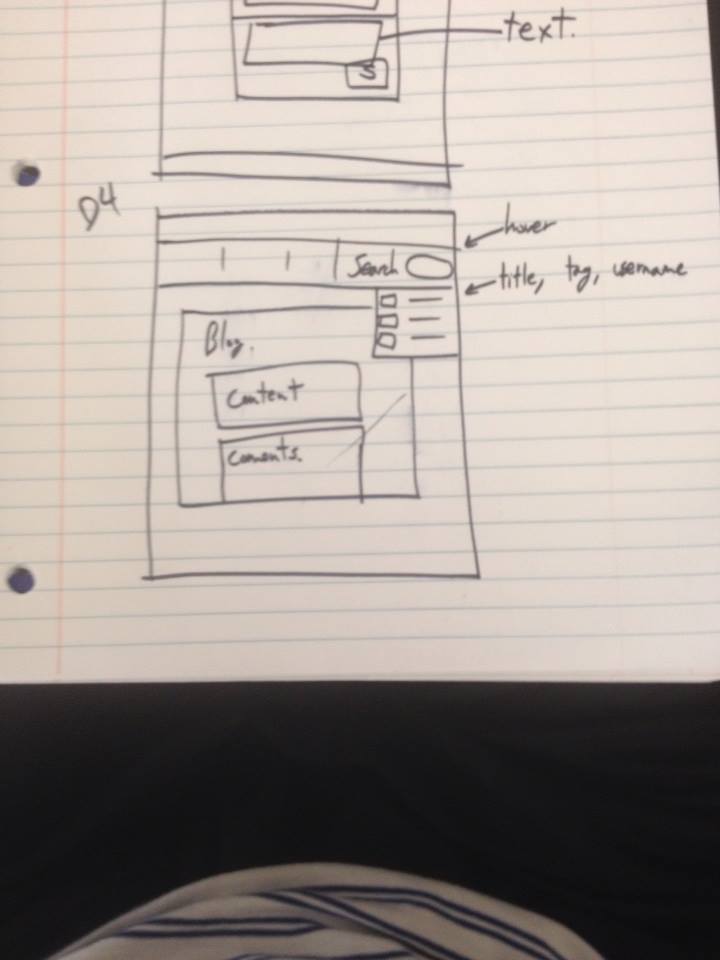 text.
S
D4
hover
Search
title, tag, username
Blog.
Content
Coments.